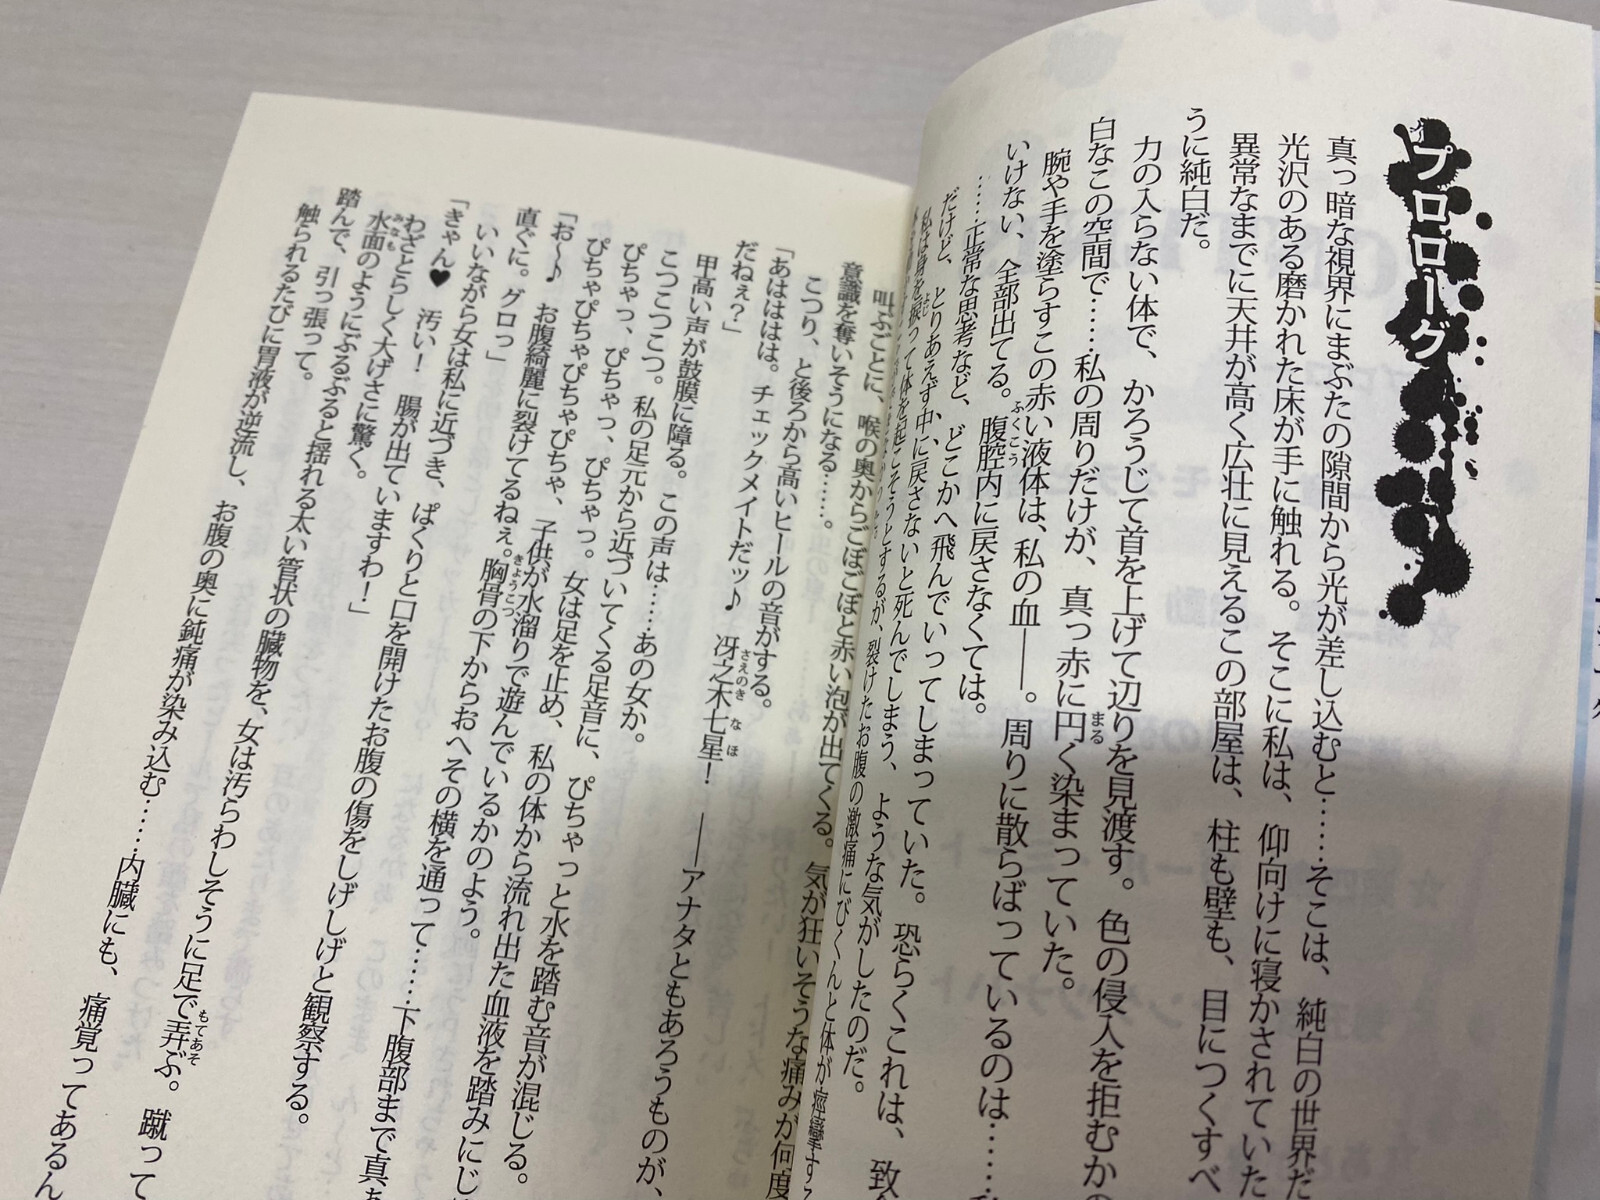 プロローグ
真っ暗な視界にまぶたの隙間から光が差し込むと……そこは、純白の世界だ
光沢のある磨かれた床が手に触れる。そこに私は、仰向けに寝かされていた
異常なまでに天井が高く広壮に見えるこの部屋は、柱も壁も、目につくすべ
うに純白だ。
力の入らない体で、かろうじて首を上げて辺りを見渡す。色の侵入を拒むかの
白なこの空間で……私の周りだけが、真っ赤に円く染まっていた。
腕や手を塗らすこの赤い液体は、私の血――。周りに散らばっているのは……
いけない、全部出てる。腹腔内に戻さなくては。
……正常な思考など、どこかへ飛んでいってしまっていた。恐らくこれは、致
だけど、とりあえず中に戻さないと死んでしまう、ような気がしたのだ。
私は身を捩って体を起こそうとするが、裂けたお腹の激痛にびくんと体が痙攣する
叫ぶごとに、喉の奥からごぼごぼと赤い泡が出てくる。気が狂いそうな痛みが何度
意識を奪いそうになる……。
こつり、と後ろから高いヒールの音がする。
「あはははは。チェックメイトだッ♪　冴之木七星！　――アナタともあろうものが、
だねぇ？」
甲高い声が鼓膜に障る。この声は……あの女か。
こつこつこつ。私の足元から近づいてくる足音に、ぴちゃっと水を踏む音が混じる。
ぴちゃっ、ぴちゃっ、ぴちゃっ。女は足を止め、私の体から流れ出た血液を踏みにじ
ぴちゃぴちゃぴちゃぴちゃ、子供が水溜りで遊んでいるかのよう。
「お～♪　お腹綺麗に裂けてるねぇ。胸骨の下からおへその横を通って……下腹部まで真
直ぐに。グロっ」
いいながら女は私に近づき、ぱくりと口を開けたお腹の傷をしげしげと観察する。
「きゃん♥　汚い！　腸が出ていますわ！」
わざとらしく大げさに驚く。
水面のようにぷるぷると揺れる太い管状の臓物を、女は汚らわしそうに足で弄ぶ。蹴って
踏んで、引っ張って。
触られるたびに胃液が逆流し、お腹の奥に鈍痛が染み込む……内臓にも、痛覚ってあるん